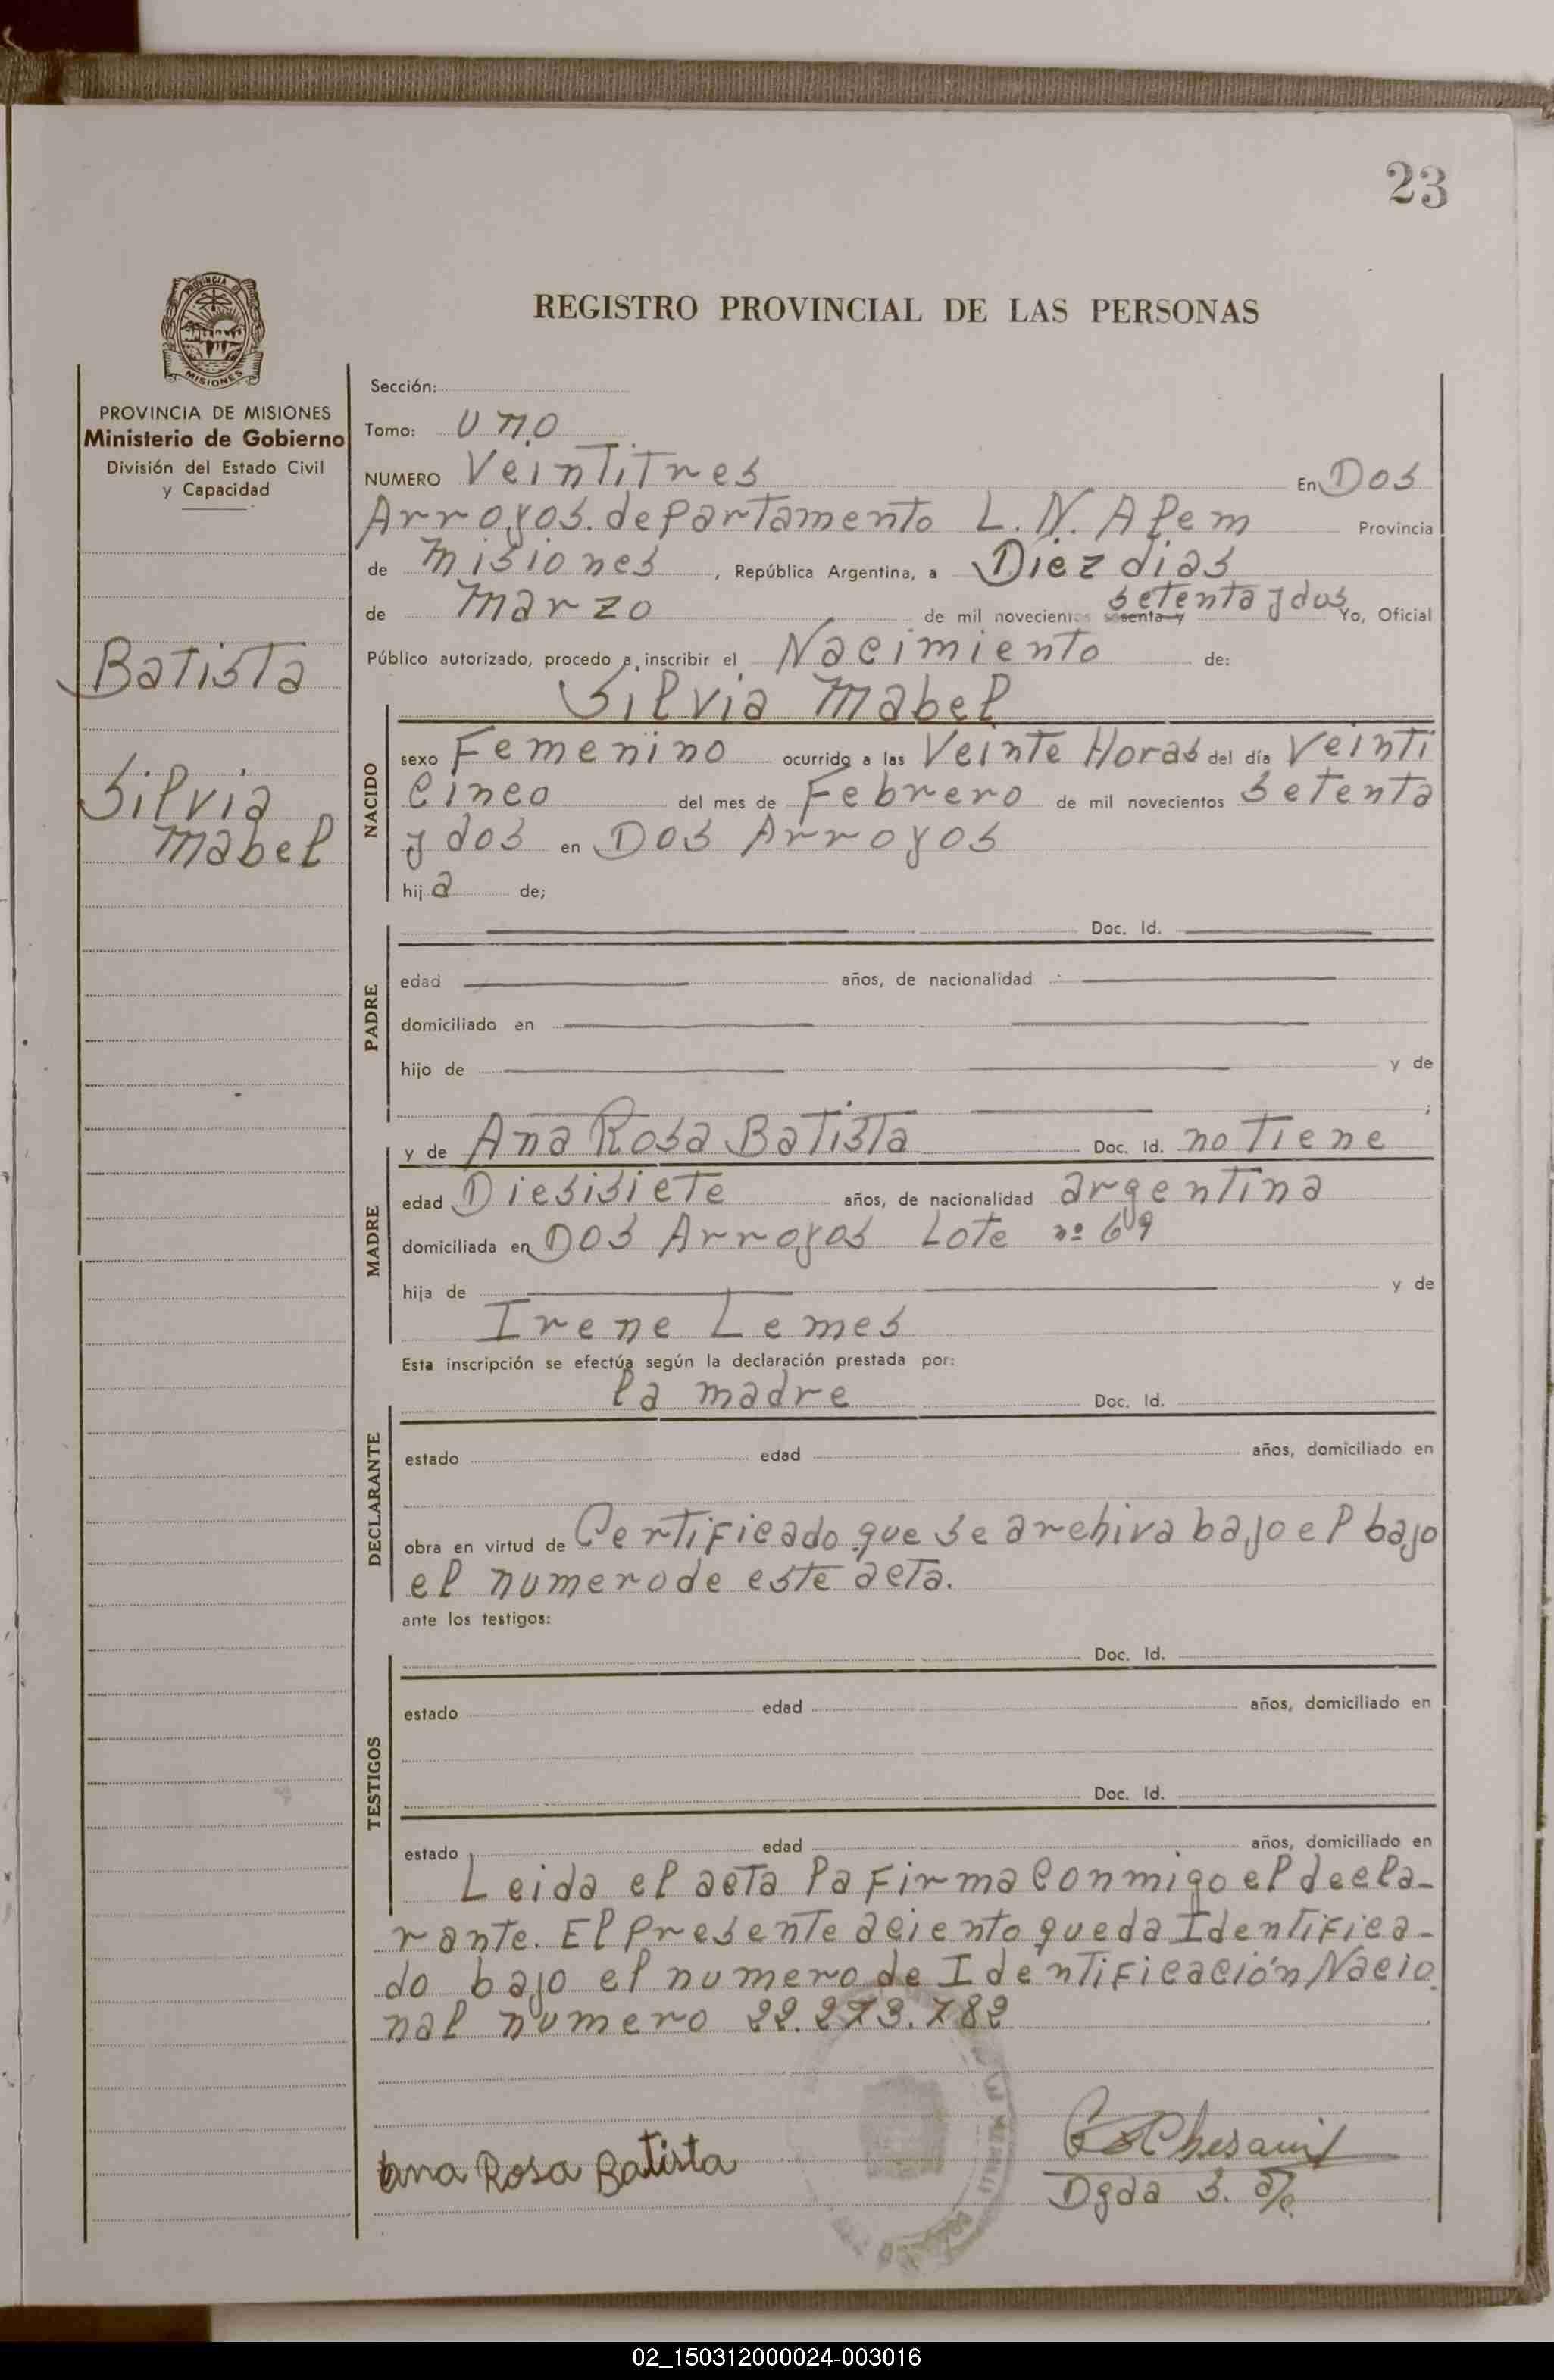 23
PROVINCIA
MISIONES
REGISTRO PROVINCIAL DE LAS PERSONAS
PROVINCIA DE MISIONES
Ministerio de Gobierno
División del Estado Civil
y Capacidad
Batista
Silvia
Mabel
Sección:
Tomo: uno
NUMERO Veintitres En Dos
Arroyos. departamento L. N. Alem Provincia
de Misiones, República Argentina, a Diez dias
de Marzo de mil novecientos sesenta y setenta y dos Yo, Oficial
Público autorizado, procedo a inscribir el Nacimiento de:
Silvia Mabel
NACIDO
sexo Femenino ocurrido a las Veinte Horas del día Veinti
Cinco del mes de Febrero de mil novecientos Setenta
y dos en Dos Arroyos
hija de;
PADRE
Doc. Id.
edad años, de nacionalidad
domiciliado en
hijo de y de
;
MADRE
y de Ana Rosa Batista Doc. Id. no Tiene
edad Diesisiete años, de nacionalidad argentina
domiciliada en Dos Arroyos Lote nº 69
hija de y de
Irene Lemes
Esta inscripción se efectúa según la declaración prestada por:
DECLARANTE
la madre Doc. Id.
estado edad años, domiciliado en
obra en virtud de Certificado que se archiva bajo el bajo
el numero de este acta.
ante los testigos:
TESTIGOS
Doc. Id.
estado edad años, domiciliado en
Doc. Id.
estado edad años, domiciliado en
Leida el acta la firma Conmigo el decla-
rante. El presente aciento queda Identifica-
do bajo el numero de Identificación Nacio
nal numero 22.273.782
ana Rosa Batista
Dgda S. a/c.
02_150312000024-003016